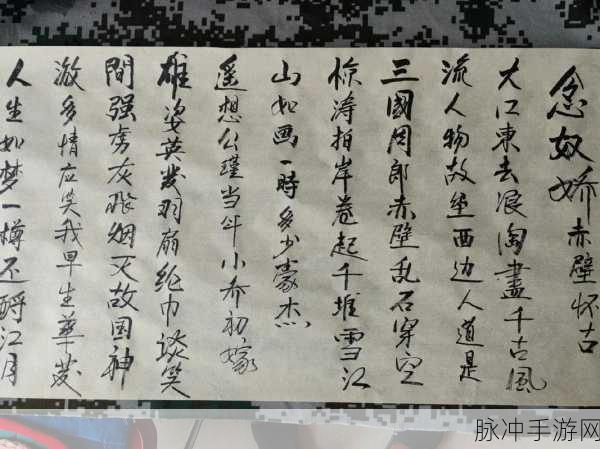 念奴娇赤壁怀古
大江東去浪淘盡千古風
流人物故垒西边人道是
三國周郎赤壁乱石穿空
惊涛拍岸卷起千堆雪江
山如画一時多少豪杰
遥想公瑾当年小乔初嫁
雄姿英发羽扇纶巾谈笑
間强虏灰飛烟灭故国神
游多情应笑我早生華发
人生如梦一樽还酹江月
脉冲手游网